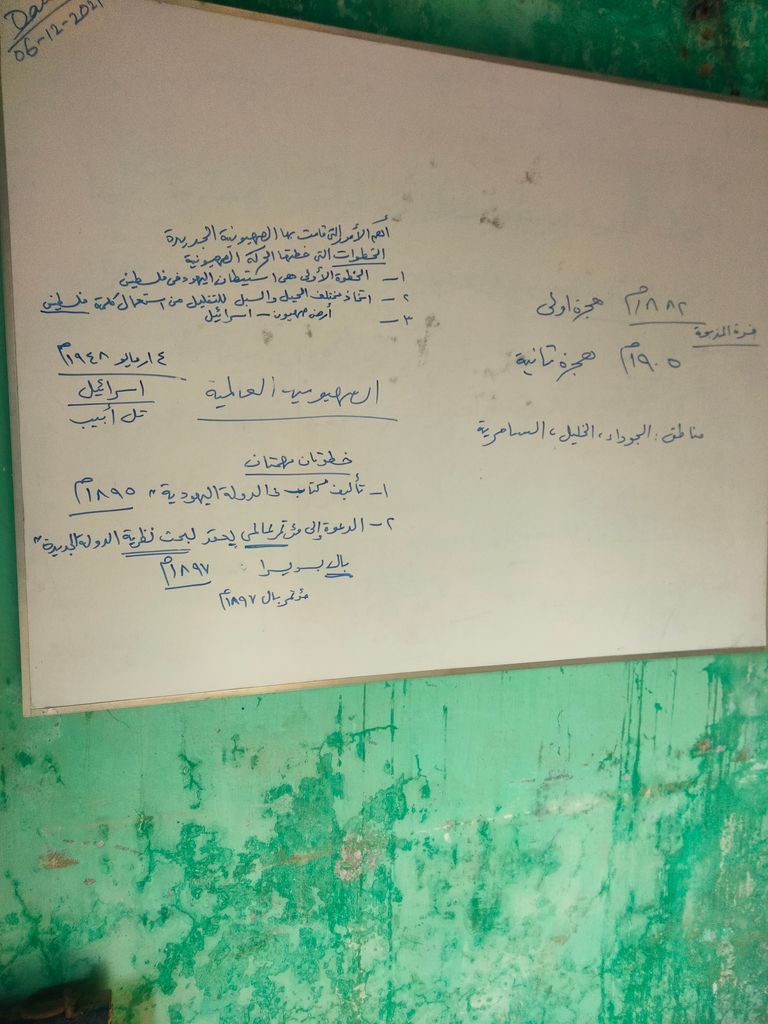 06-12-2021
أهم الأمور التي قامت بها الصهيونية الجديدة
الخطوات التي خطتها الحركة الصهيونية
١- الخطوة الأولى هي استيطان اليهود في فلسطين
٢- اتخاذ مختلف الحيل والسبل للتقليل من استعمال كلمة فلسطين
٣- أرض صهيون - اسرائيل
١٨٨٢م هجرة اولى
١٩٠٥م هجرة ثانية
مناطق: الجوداء، الخليل، السامرية
١٤ مايو ١٩٤٨م
اسرائيل
تل أبيب
الصهيونية العالمية
خطوتان مهمتان
١- تأليف كتاب "الدولة اليهودية" ١٨٩٥م
٢- الدعوة إلى مؤتمر عالمي يعقد لبحث نظرية الدولة الجديدة"
بال ١٨٩٧م
مؤتمر بال ١٨٩٧م